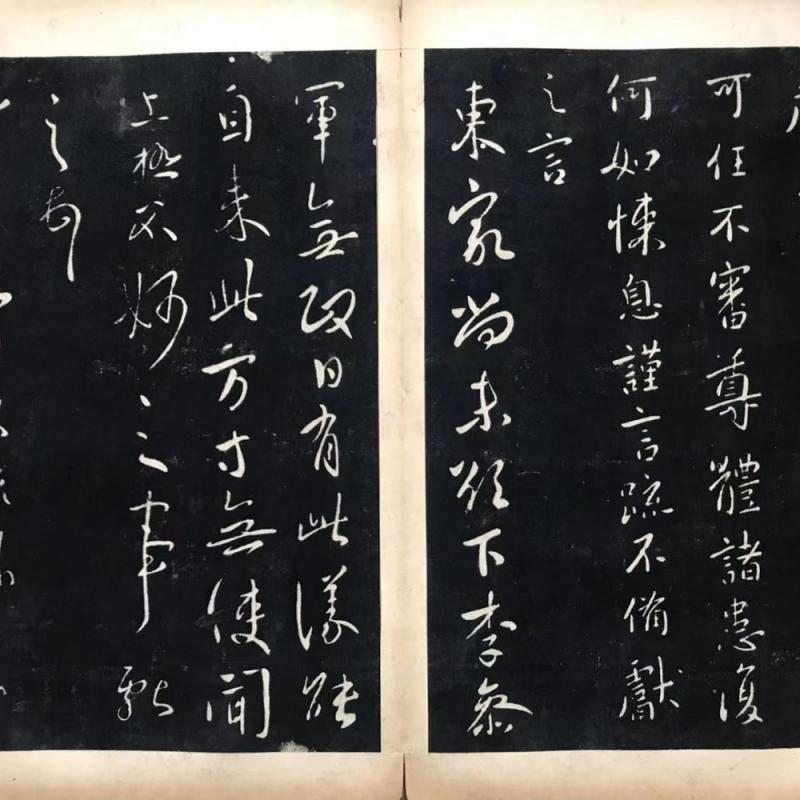 可任不審尊體諸患復
何如悚息謹言疏不備獻
之言
東家尚未欲下李參
軍無政日有此議能
自來此方寸無使聞
上極不妙之事
之